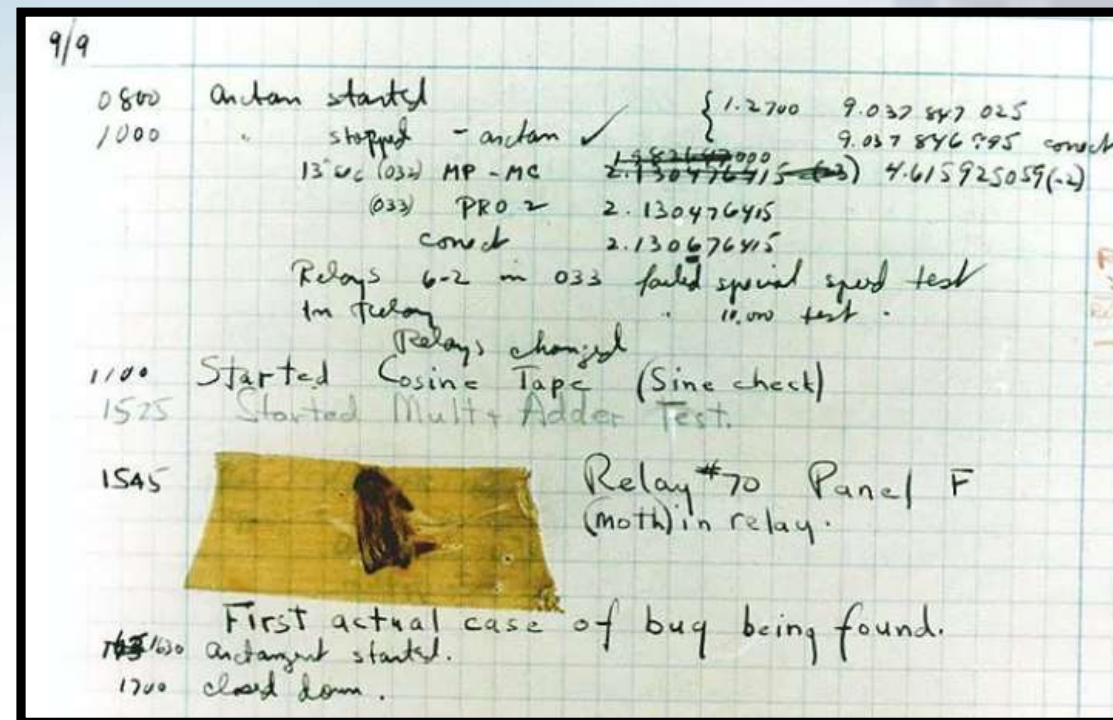 9/9
0800 arctan started { 1.2700 9.037 847 025
1000 " stopped - arctan ✓ 9.037 846 995 correct
(032) MP - MC 2.130476415 4.615925059(-2)
(033) PRO 2 2.130476415
correct 2.130676415
Relays 6-2 in 033 failed special speed test
in relay " 10,000 test .
Relays changed
1100 Started Cosine Tape (Sine check)
1525 Started Mult + Adder Test.
1545 Relay #70 Panel F
(moth) in relay.
First actual case of bug being found.
1630 arctangent started.
1700 closed down.